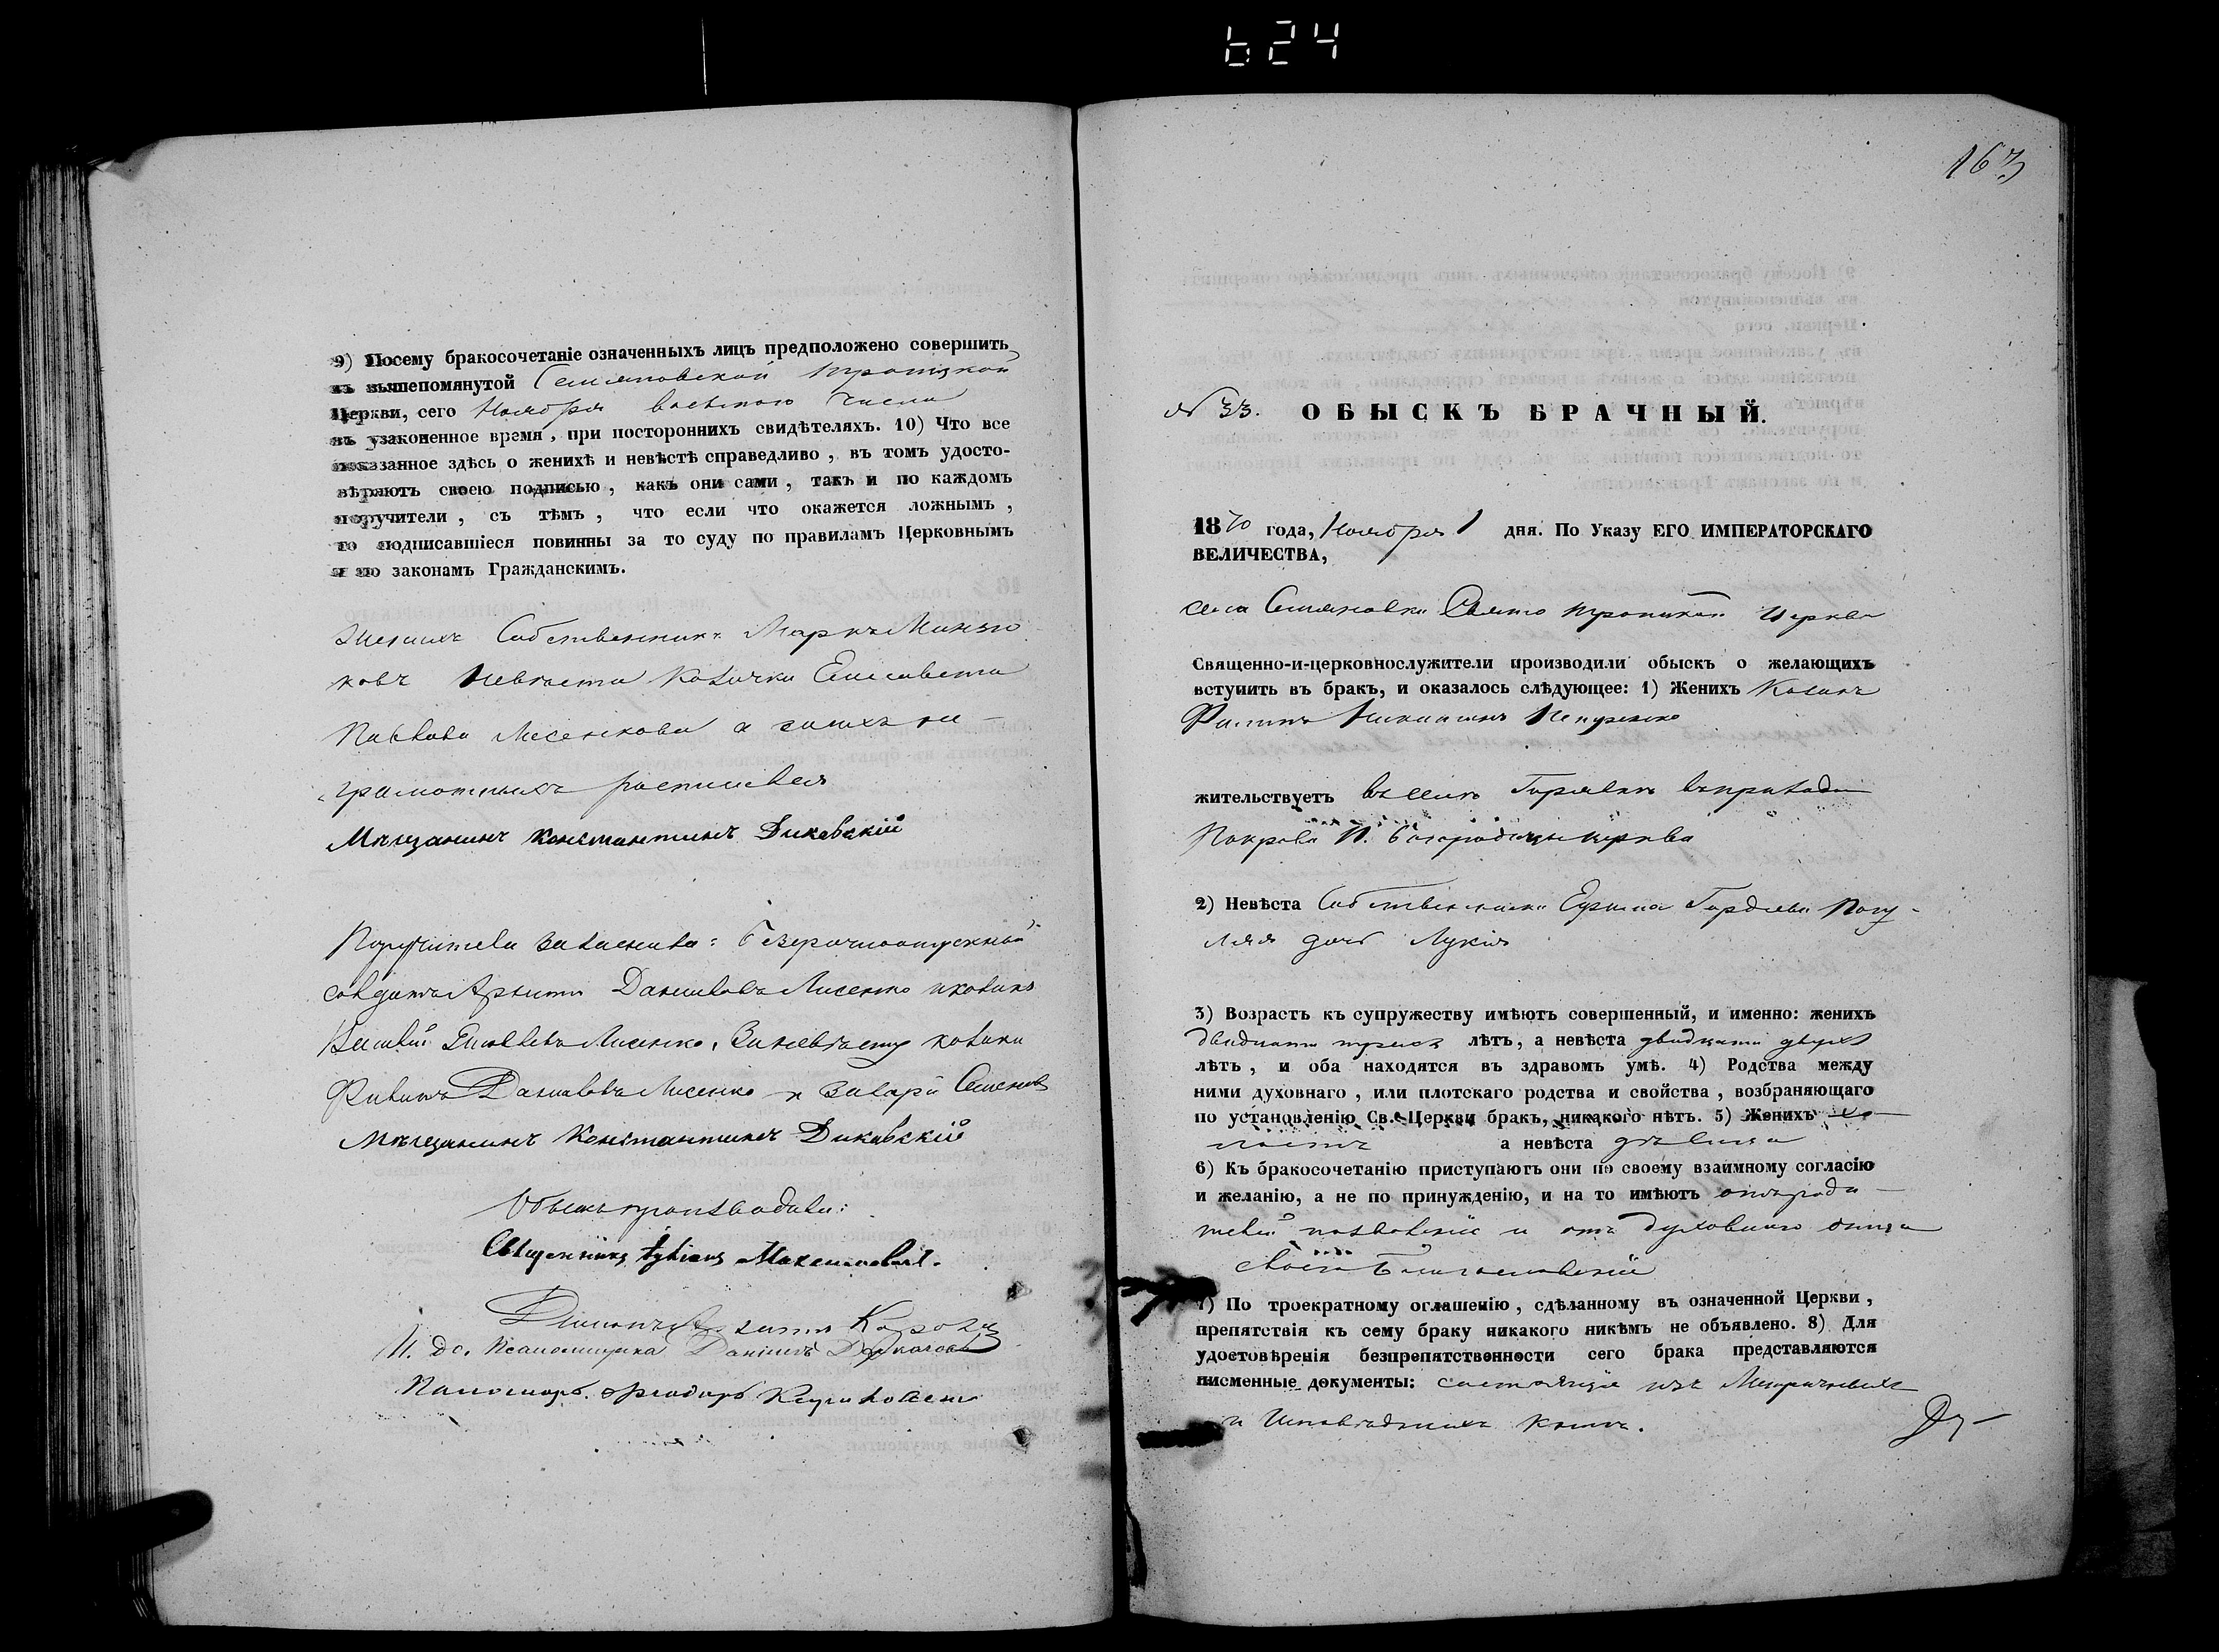 624
9) Посему бракосочетаніе означенныхъ лицъ предположено совершить
въ вышепомянутой Семяновской Троицкой
Церкви, сего Ноября восьмого числа
въ узаконенное время, при постороннихъ свидѣтеляхъ. 10) Что все
показанное здѣсь о женихѣ и невѣстѣ справедливо, въ томъ удосто-
вѣряютъ своею подписью, какъ они сами, такъ и по каждомъ
поручители, съ тѣмъ, что если что окажется ложнымъ,
то подписавшіеся повинны за то суду по правиламъ Церковнымъ
и по законамъ Гражданскимъ.
Женихъ Собственникъ Маркъ
Невѣста козачка Елисавета
Павлова Лисенкова а за ихъ не-
грамотныхъ росписался
Мѣщанинъ Константинъ Диковскій
Поручители за жениха: безсрочноотпускный
солдатъ Данииловъ Лисенко и козакъ
Лисенко, За невѣсту козаки
Данииловъ Лисенко и Семеновъ
Мѣщанинъ Константинъ Диковскій
Обыскъ производили:
Священникъ Максимовичъ.
Діаконъ
И. до. Псаломщика Даніилъ
Пономарь Феодоръ
163
№ 33. ОБЫСКЪ БРАЧНЫЙ.
1870 года, Ноября 1 дня. По Указу ЕГО ИМПЕРАТОРСКАГО
ВЕЛИЧЕСТВА,
села Семяновки Свято Троицкой Церкви
Священно-и-церковнослужители производили обыскъ о желающихъ
вступить въ бракъ, и оказалось слѣдующее: 1) Женихъ Козакъ
Филипъ Никитинъ
жительствуетъ въ селѣ въ приходѣ
Покрова П. Богородицы церкви
2) Невѣста Собственника Гордіева
дочь Лукія
3) Возрастъ къ супружеству имѣютъ совершенный, и именно: женихъ
двадцати трехъ лѣтъ, а невѣста двадцати двухъ
лѣтъ, и оба находятся въ здравомъ умѣ. 4) Родства между
ними духовнаго, или плотскаго родства и свойства, возбраняющаго
по установленію Св. Церкви бракъ, никакого нѣтъ. 5) Женихъ хо-
лостъ а невѣста дѣвица
6) Къ бракосочетанію приступаютъ они по своему взаимному согласію
и желанію, а не по принужденію, и на то имѣютъ отъ роди-
телей позволеніе и отъ духовнаго отца
своего благословеніе
7) По троекратному оглашенію, сдѣланному въ означенной Церкви,
препятствія къ сему браку никакого никѣмъ не объявлено. 8) Для
удостовѣренія безпрепятственности сего брака представляются
писменные документы: состоящіе изъ Метрическихъ
и Исповѣдныхъ книгъ.